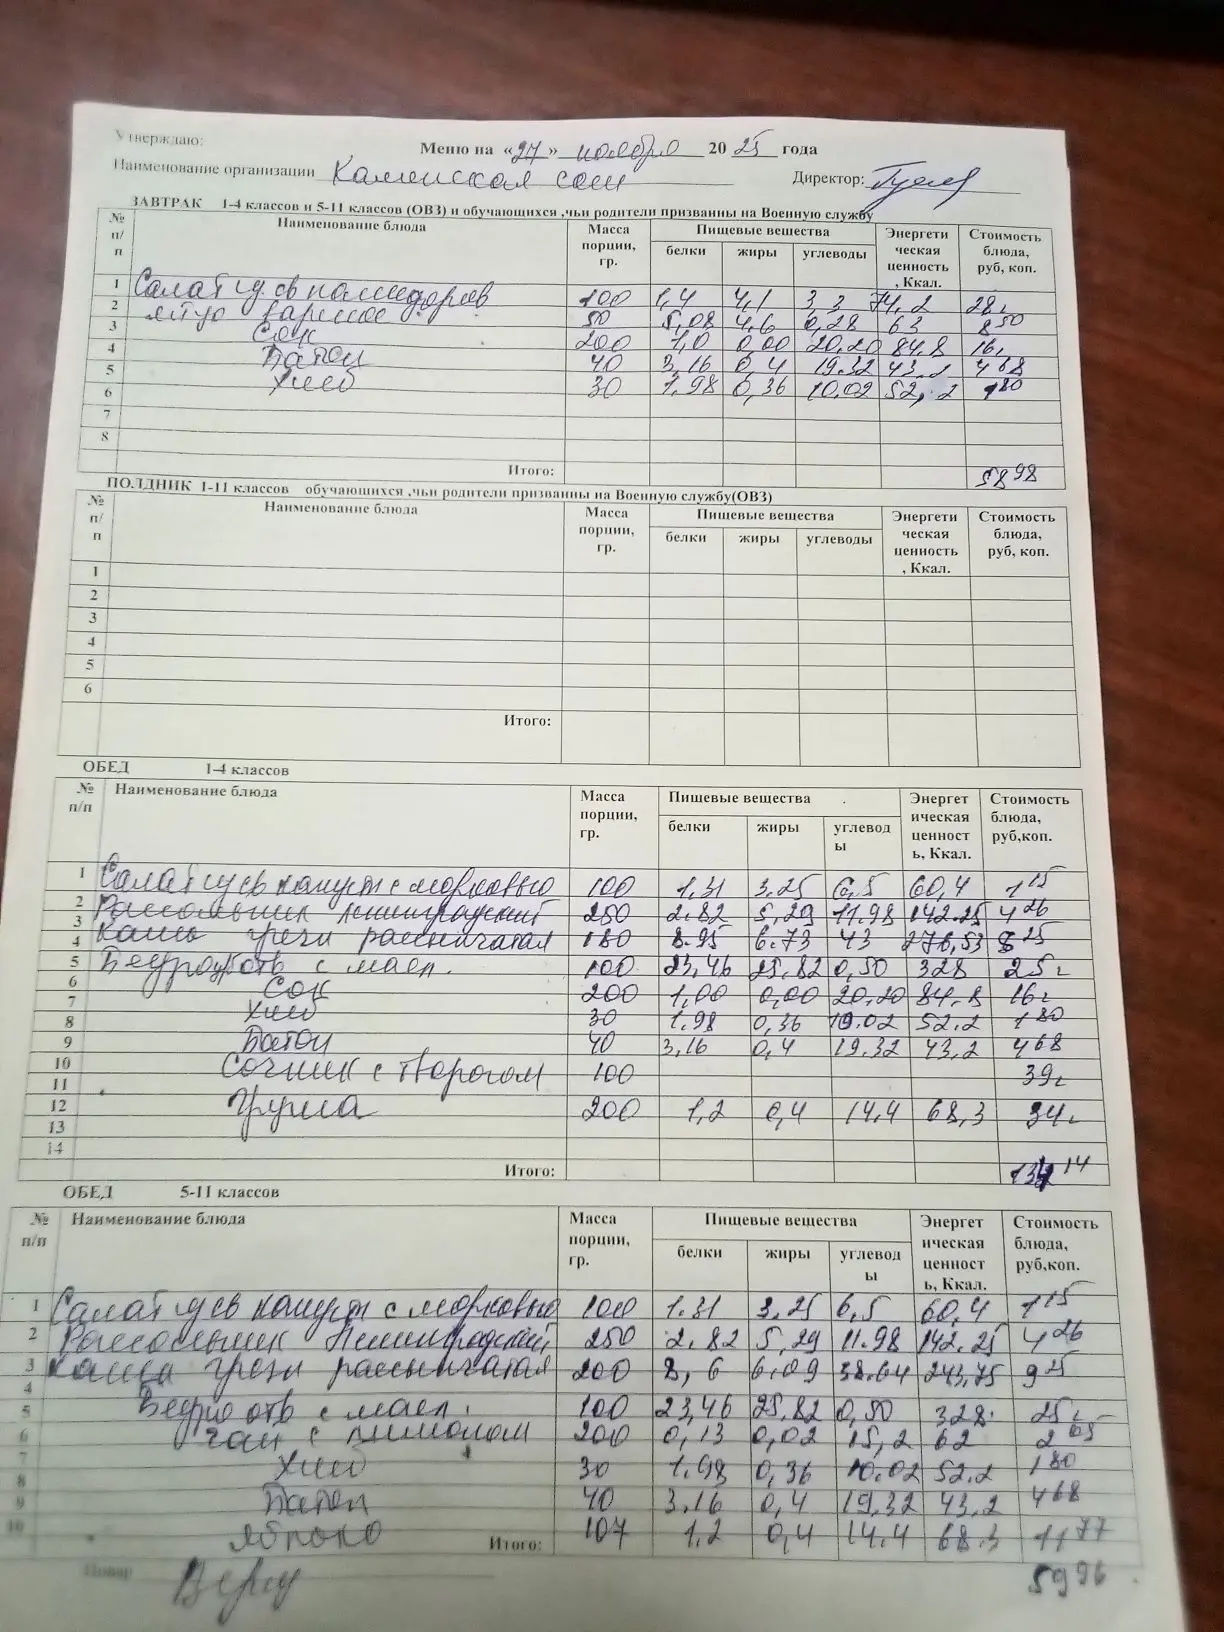 Утверждаю:
Меню на «27» ноября 2025 года
Наименование организации Каменская сош Директор:
ЗАВТРАК 1-4 классов и 5-11 классов (ОВЗ) и обучающихся ,чьи родители призванны на Военную службу
№ п/п Наименование блюда Масса порции, гр. Пищевые вещества Энергетическая ценность, Ккал. Стоимость блюда, руб, коп.
белки жиры углеводы
1 Салат из св помидоров 100 1,4 4,1 3 3 74,2 28
2 яйцо варёное 50 5,08 4,6 0,28 63 8 50
3 Сок 200 1,0 0,00 20,20 84,8 16
4 Батон 40 3,16 0,4 19.32 43.2 4 68
5 Хлеб 30 1.98 0,36 10.02 52,2 1 80
6
7
8
Итого: 58 98
ПОЛДНИК 1-11 классов обучающихся ,чьи родители призванны на Военную службу(ОВЗ)
№ п/п Наименование блюда Масса порции, гр. Пищевые вещества Энергетическая ценность, Ккал. Стоимость блюда, руб, коп.
белки жиры углеводы
1
2
3
4
5
6
Итого:
ОБЕД 1-4 классов
№ п/п Наименование блюда Масса порции, гр. Пищевые вещества Энергетическая ценность, Ккал. Стоимость блюда, руб,коп.
белки жиры углеводы
1 Салат из св капуст с морковью 100 1,31 3.25 6,5 60,4 7 15
2 Рассольник Ленинградский 250 2.82 5,29 11.98 142.25 4 26
3 Каша греч рассыпчатая 180 8.95 6.73 43 276,53 8 25
4 Бедро отв с масл. 100 23,46 25,82 0,50 328 25
5 Сок 200 1,00 0,00 20,20 84,8 16
6 Хлеб 30 1.98 0,36 10.02 52.2 1 80
7 Батон 40 3,16 0,4 19.32 43,2 4 68
8 Сочник с творогом 100 39
9 Груша 200 1,2 0,4 14,4 68,3 34
10
11
12
13
14
Итого: 14
ОБЕД 5-11 классов
№ п/п Наименование блюда Масса порции, гр. Пищевые вещества Энергетическая ценность, Ккал. Стоимость блюда, руб,коп.
белки жиры углеводы
1 Салат из св капуст с морковью 100 1.31 3,25 6,5 60,4 7 15
2 Рассольник Ленинградский 250 2.82 5,29 11.98 142.25 4 26
3 Каша греч рассыпчатая 200 8,6 6.09 38.64 243,75 9 25
4 Бедро отв с масл. 100 23,46 25,82 0,50 328 25
5 чай с лимоном 200 0,13 0,02 15,2 62 2 65
6 Хлеб 30 1.98 0,36 10.02 52.2 1 80
7 Батон 40 3.16 0,4 19,32 43,2 4 68
8 яблоко 107 1,2 0,4 14.4 68.3 11 77
9
10 Итого:
Повар 59 96